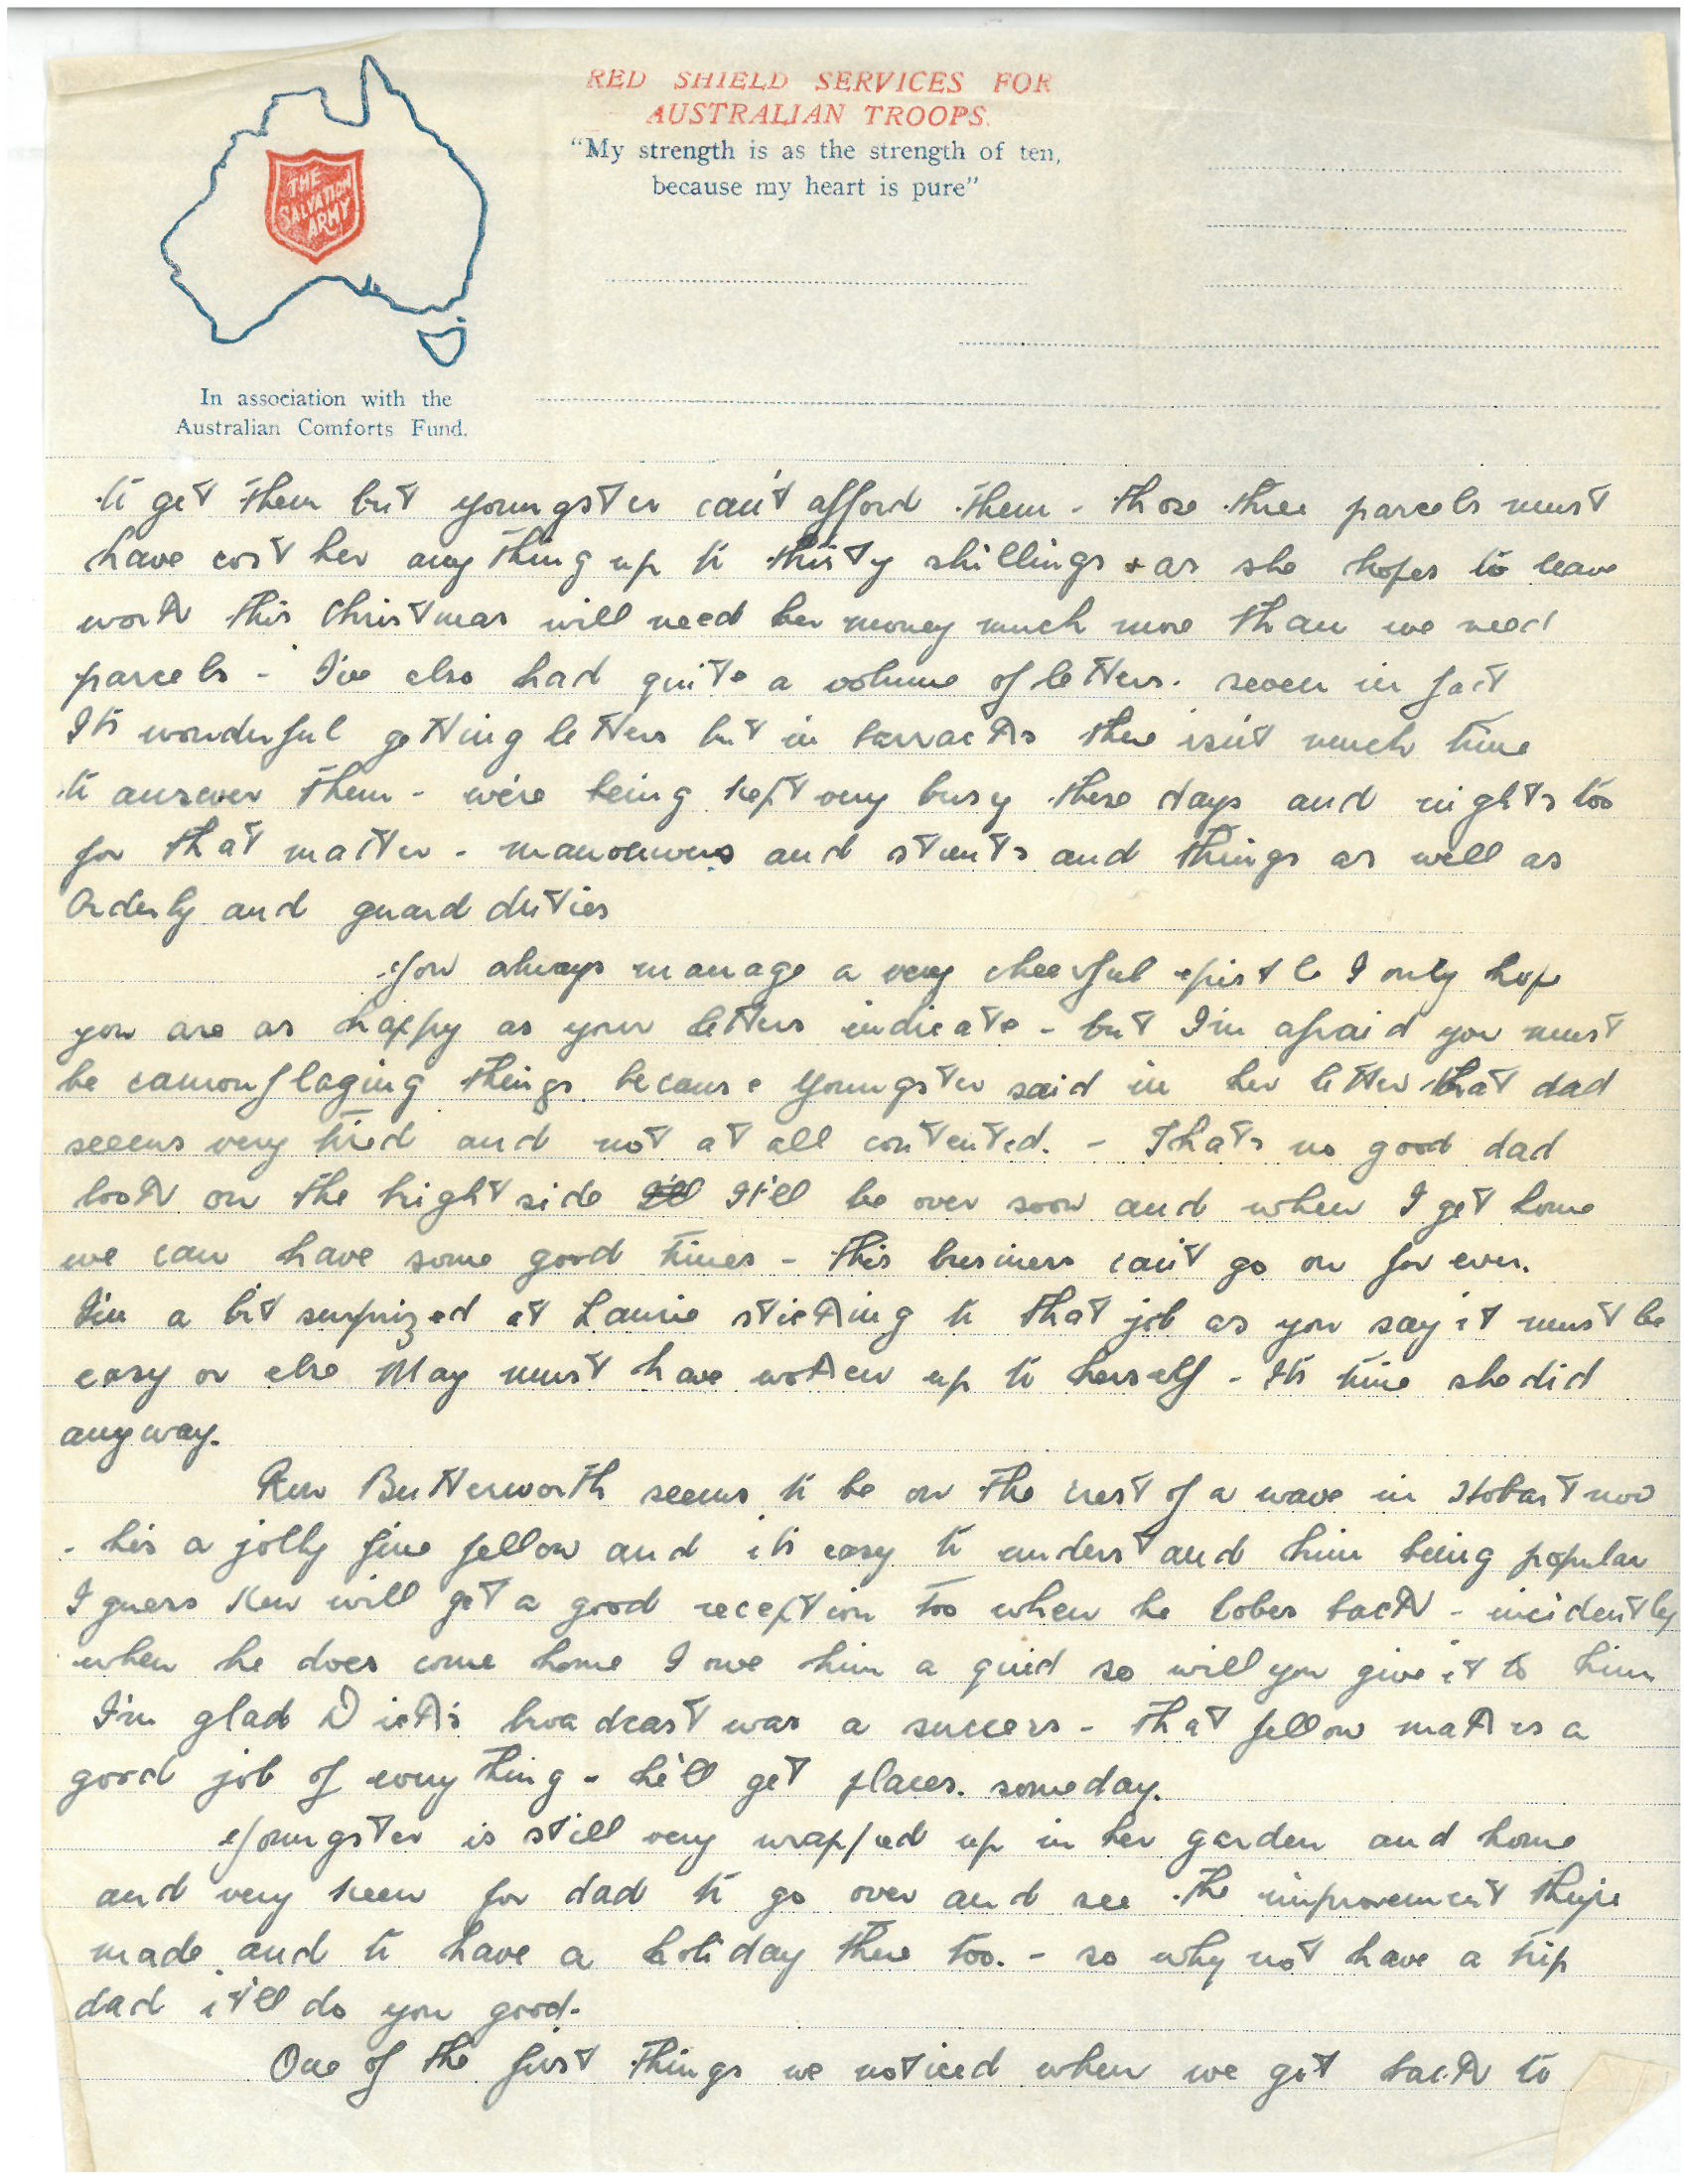 RED SHIELD SERVICES FOR
AUSTRALIAN TROOPS.
"My strength is as the strength of ten,
because my heart is pure"
THE
SALVATION
ARMY
In association with the
Australian Comforts Fund.
to get them but youngster can't afford them - those three parcels must
have cost her anything up to thirty shillings + as she hopes to leave
work this Christmas will need her money much more than we need
parcels - I've also had quite a volume of letters. seven in fact
Its wonderful getting letters but in barracks there isn't much time
to answer them - we're being kept very busy these days and nights too
for that matter - manoeuvers and stunts and things as well as
Orderly and guard duties
You always manage a very cheerful epistle I only hope
you are as happy as your letters indicate - but I'm afraid you must
be camouflaging things because youngster said in her letter that dad
seems very tired and not at all contented. - Thats no good dad
look on the bright side It'll be over soon and when I get home
we can have some good times - this business can't go on for ever.
I'm a bit surprized at Laurie sticking to that job as you say it must be
easy or else May must have woken up to herself - Its time she did
anyway.
Ken Butterworth seems to be on the crest of a wave in Hobart now
- hes a jolly fine fellow and its easy to understand him being popular
I guess Ken will get a good reception too when he lobes back - incidently
when he does come home I owe him a quid so will you give it to him
I'm glad Dick's broadcast was a success - that fellow makes a
good job of everything - he'll get places. someday.
Youngster is still very wrapped up in her garden and home
and very keen for dad to go over and see the improvement they're
made and to have a holiday there too. - so why not have a trip
dad it'll do you good.
One of the first things we noticed when we got back to